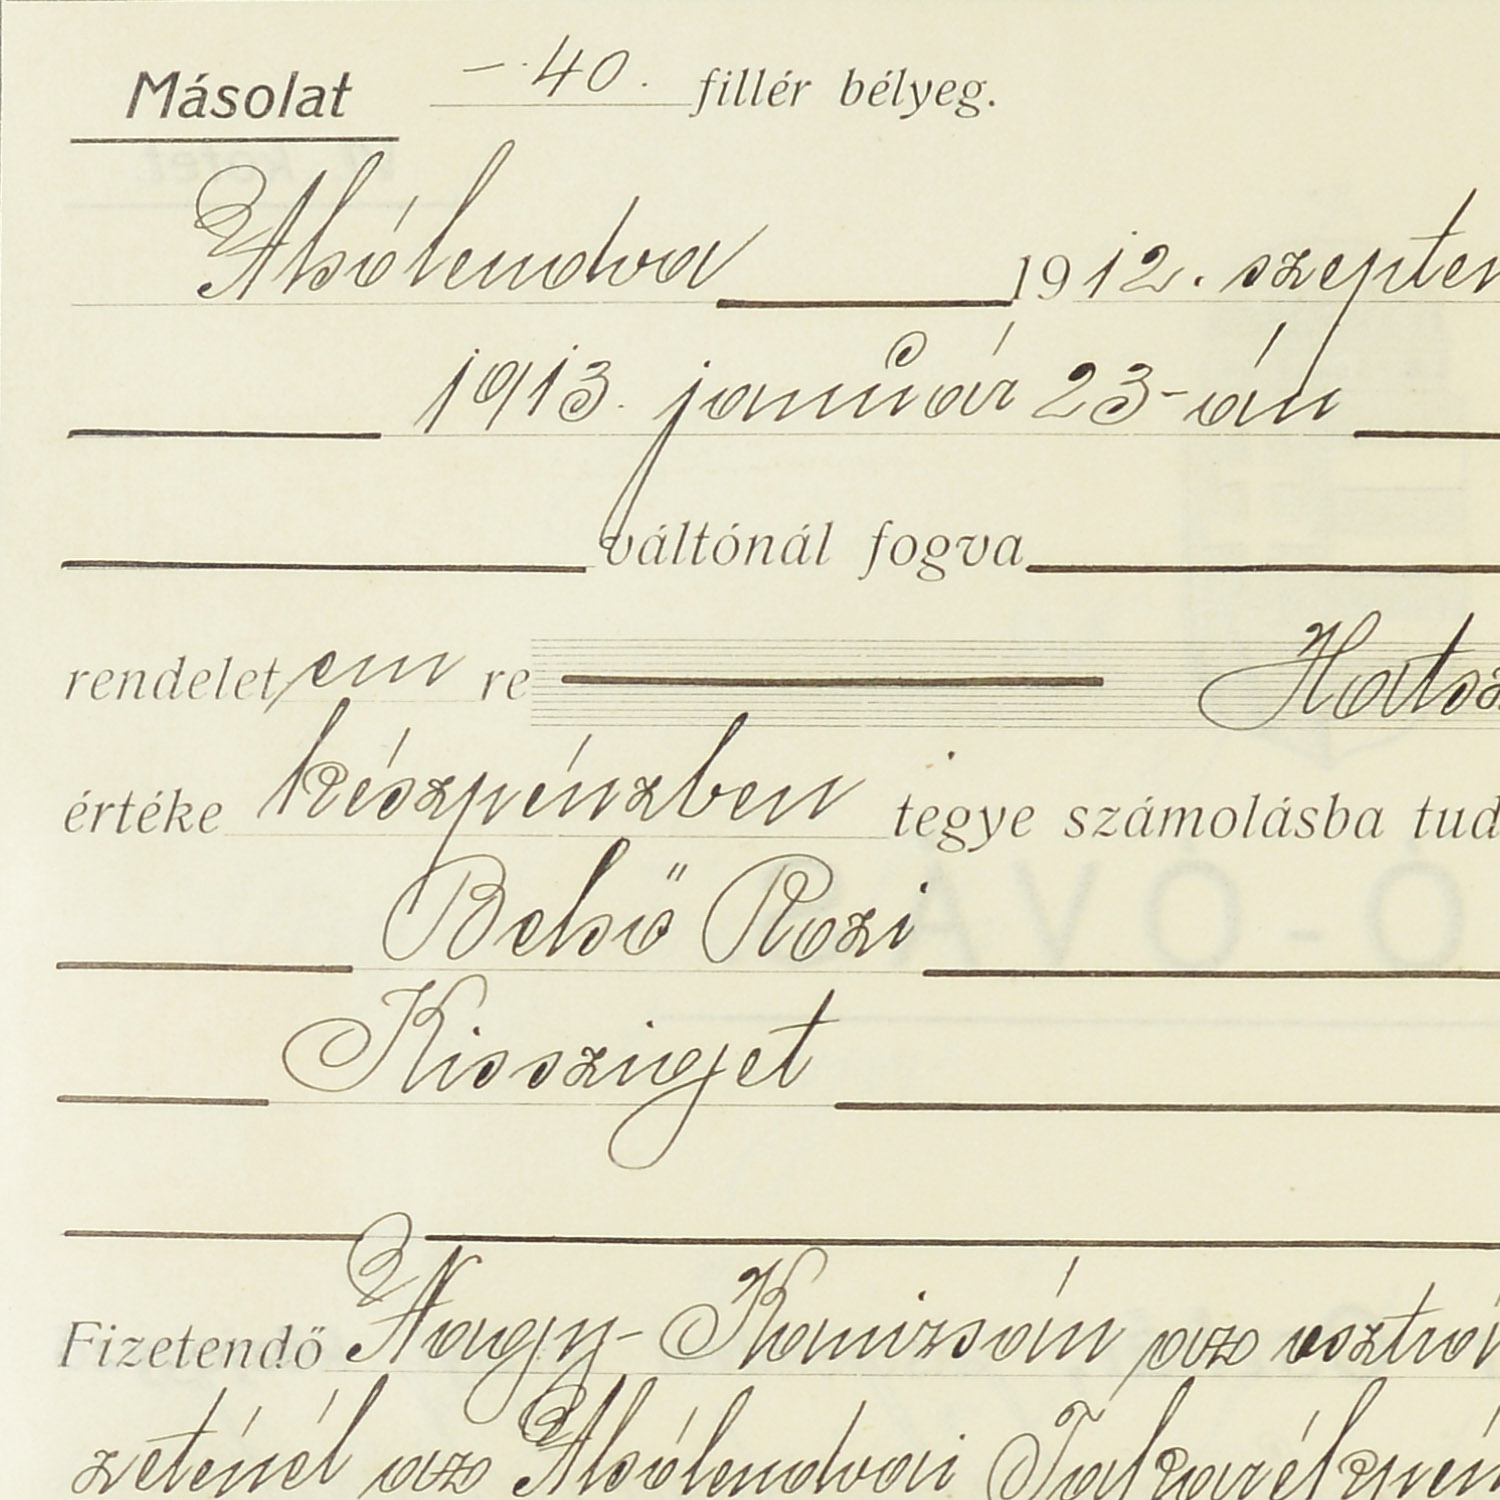 Másolat -.40. fillér bélyeg.
Alsólendva 1912. szepten
1913. január 23-án
váltónál fogva
rendelet em re Hatsz
értéke készpénzben tegye számolásba tud
Belső Rozi
Kissziget
Fizetendő Nagy-Kanizsán az osztrá
zeténél az Alsólendvai Takarékpén